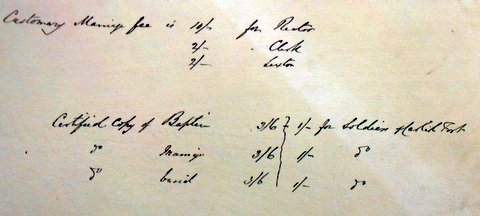 Customary Marriage fee is 10/- for Rector
2/- " Clerk
2/- Sexton
Certified Copy of Baptism 3/6 } 1/- for Soldiers of Carlisle Fort
do Marriage 3/6 1/- do
do burial 3/6 1/- do